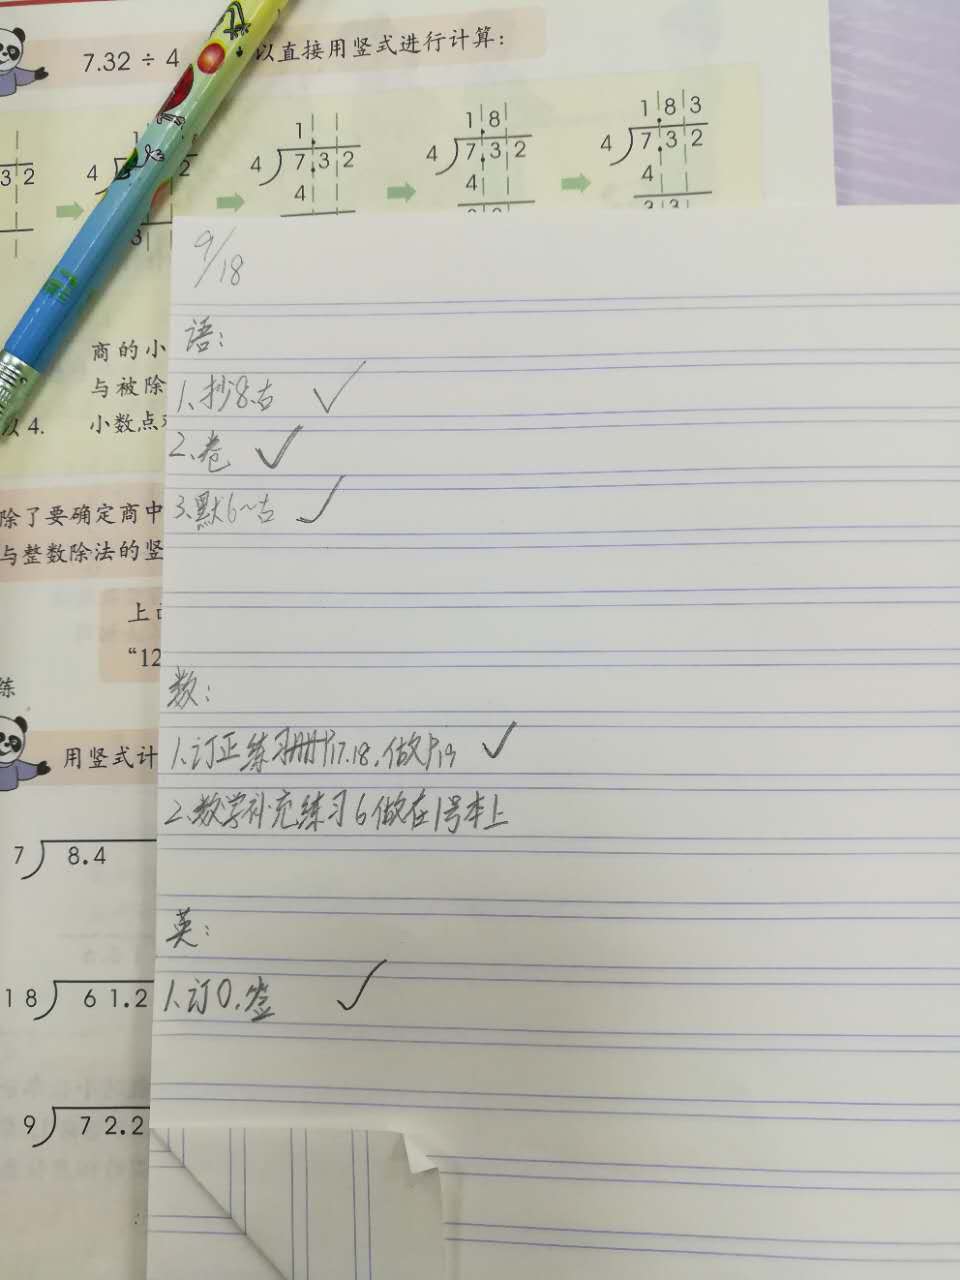 7.32 ÷ 4
以直接用竖式进行计算：
1 8 3
1 8
1
3 2
4
2
4
7.3 2
4
7.3 2
4
7.3 2
4
4
4
3
3 3
3 3
9/18
语：
商的小
1、抄8.古
与被除
以 4.
小数点
2、卷
3、默6～古
除了要确定商中
与整数除法的竖
上
“12
练
数：
用竖式计
1、订正练习册P17.18，做P19
2、数学补充练习6做在1号本上
7
8.4
英：
1、订0，签
1 8
6 1.2
9
7 2.2